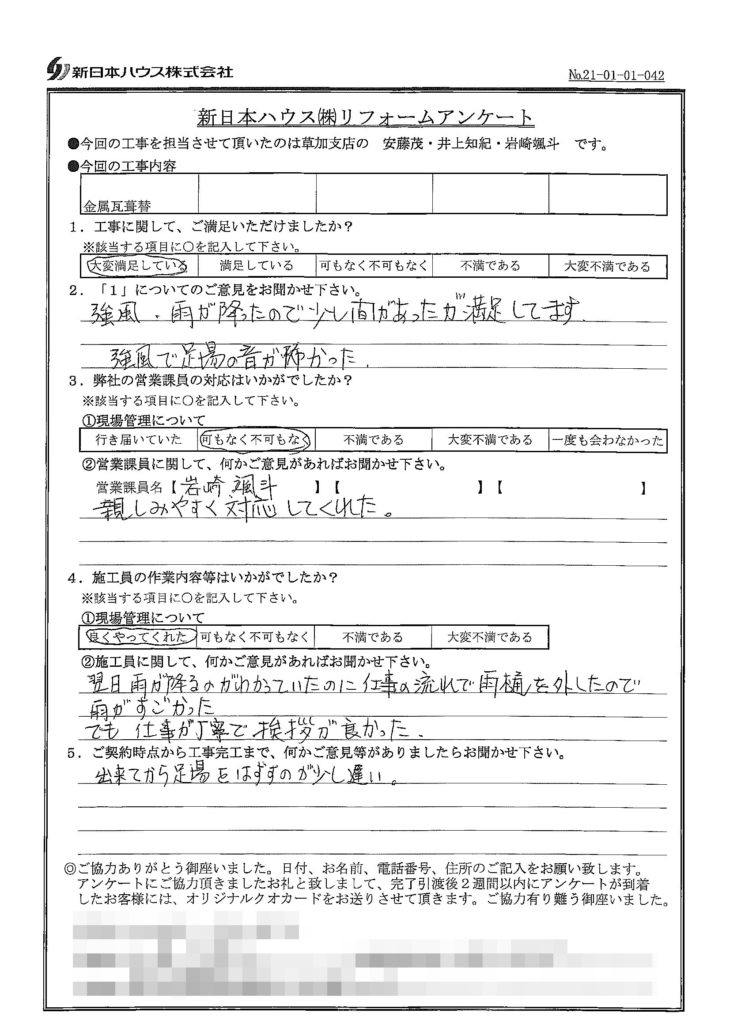 新日本ハウス株式会社
№21-01-01-042
新日本ハウス㈱リフォームアンケート
●今回の工事を担当させて頂いたのは草加支店の 安藤茂・井上知紀・岩崎颯斗 です。
●今回の工事内容
金属瓦葺替
1．工事に関して、ご満足いただけましたか？
※該当する項目に○を記入して下さい。
大変満足している 満足している 可もなく不可もなく 不満である 大変不満である
2．「1」についてのご意見をお聞かせ下さい。
強風・雨が降ったので少し間があったが満足してます.
強風で足場の音が怖かった.
3．弊社の営業課員の対応はいかがでしたか？
※該当する項目に○を記入して下さい。
①現場管理について
行き届いていた 可もなく不可もなく 不満である 大変不満である 一度も会わなかった
②営業課員に関して、何かご意見があればお聞かせ下さい。
営業課員名【岩崎 颯斗 】【 】【 】
親しみやすく対応してくれた。
4．施工員の作業内容等はいかがでしたか？
※該当する項目に○を記入して下さい。
①現場管理について
良くやってくれた 可もなく不可もなく 不満である 大変不満である
②施工員に関して、何かご意見があればお聞かせ下さい。
翌日雨が降るのがわかっていたのに仕事の流れで雨樋を外したので
雨がすごかった
でも 仕事が丁寧で挨拶が良かった.
5．ご契約時点から工事完工まで、何かご意見等がありましたらお聞かせ下さい。
出来てから足場をはずすのが少し遅い。
◎ご協力ありがとう御座いました。日付、お名前、電話番号、住所のご記入をお願い致します。
アンケートにご協力頂きましたお礼と致しまして、完了引渡後2週間以内にアンケートが到着
したお客様には、オリジナルクオカードをお送りさせて頂きます。ご協力有り難う御座いました。